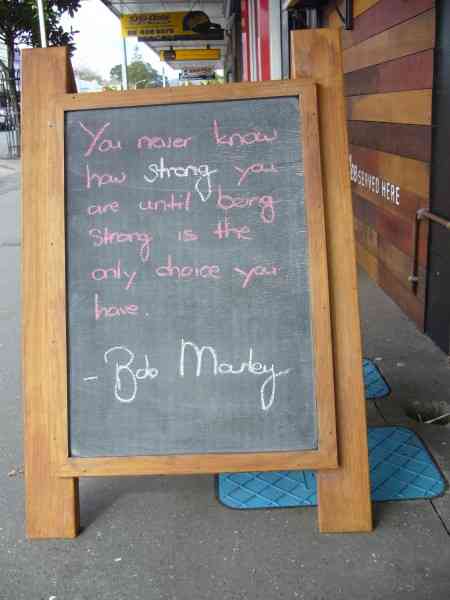 You never know
how strong you
are until being
strong is the
only choice you
have.
- Bob Marley -
SERVED HERE